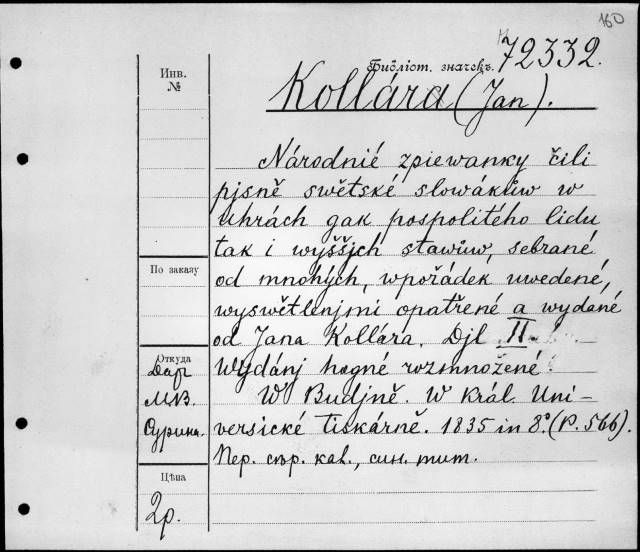 160
Библіот. значекъ. 72332.
Инв.
№
Kollára (Jan).
Národnié zpiewanky čili
pjsně swětské slowákůw w
Uhrách gak pospolitého lidu
tak i wyššjch stawůw, sebrané
По заказу
od mnohých, wpořádek uwedené,
wyswětlenjmi opatřené a wydané
od Jana Kollára. Djl II
Откуда
Wydánj hogné rozmnožené.
Даръ
М.В.
W Budjně. W král. Uni-
versické tiskárně. 1835 in 8º. (P. 566).
Пер. сѣр. кал., син. тит.
Цѣна
2р.